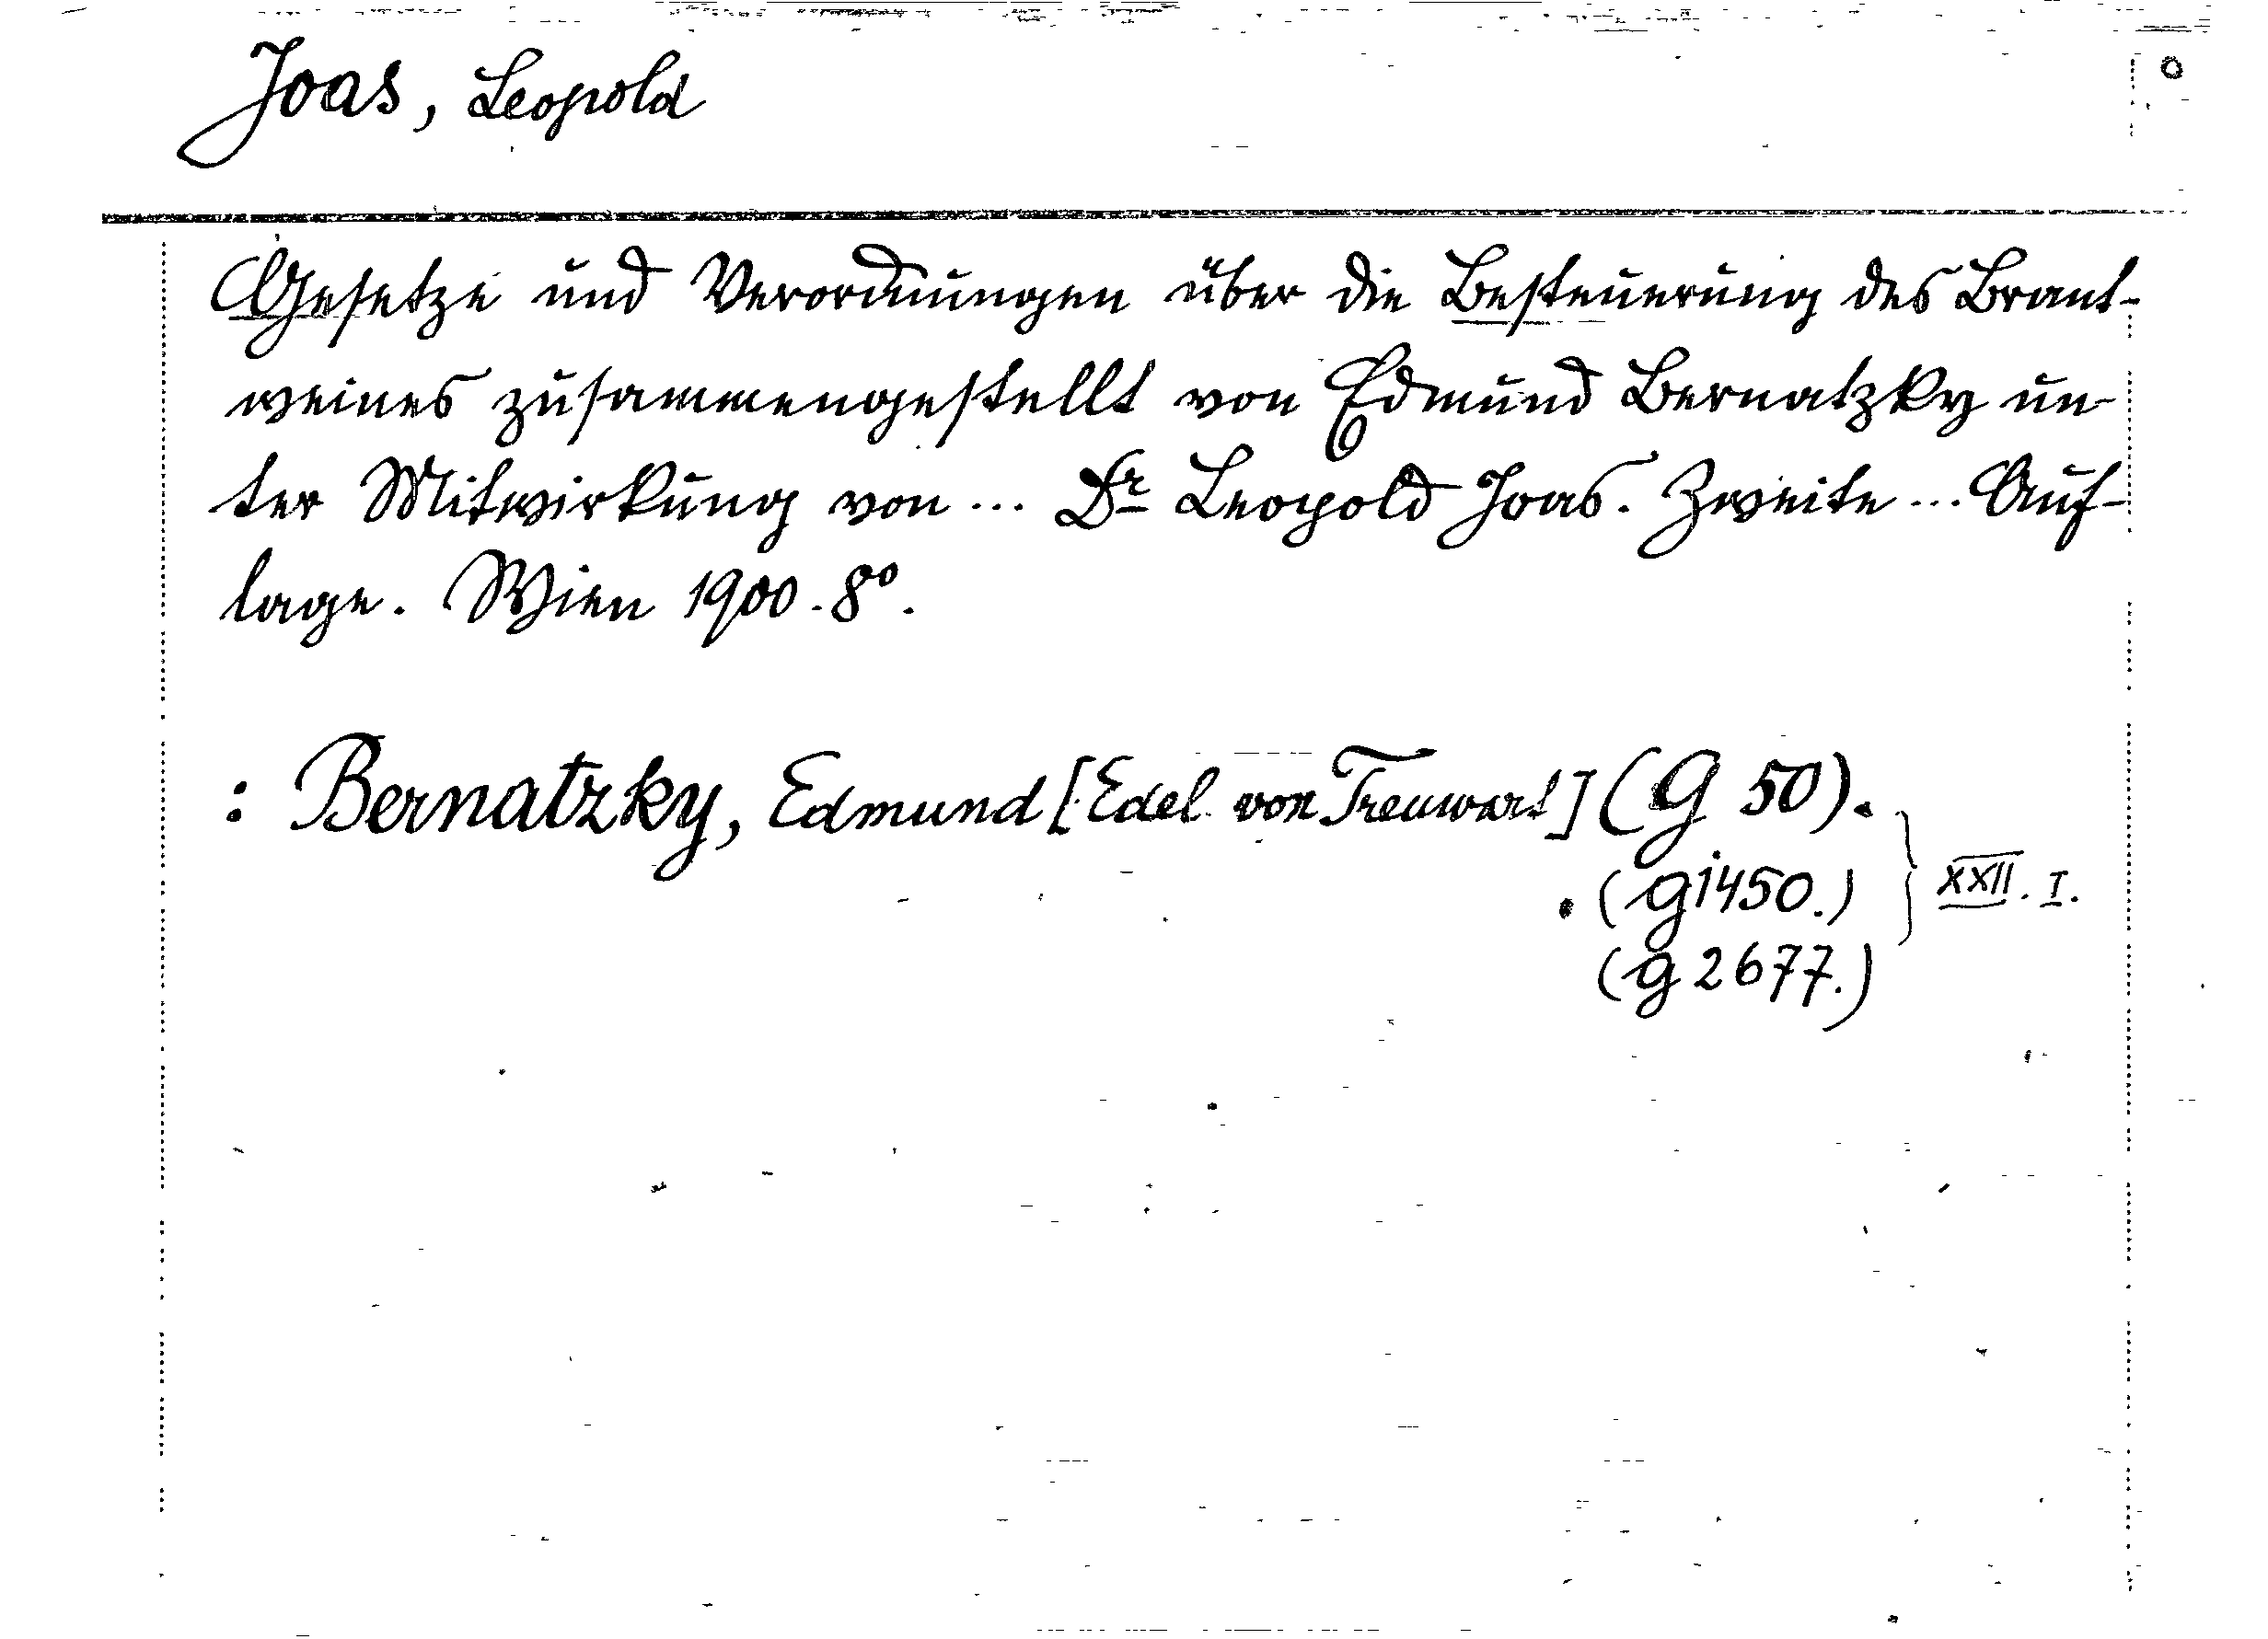 Joas, Leopold
Gesetze und Verordnungen über die Besteuerung des Brant-
weines zusammengestellt von Edmund Bernatzky un-
ter Mitwirkung von ... Dr Leopold Joas. Zweite ... Auf-
lage. Wien 1900. 8°.
: Bernatzky, Edmund [Edel von Treuwart] (G 50).
(g 1450.) } XXII. I.
(g 2677.)